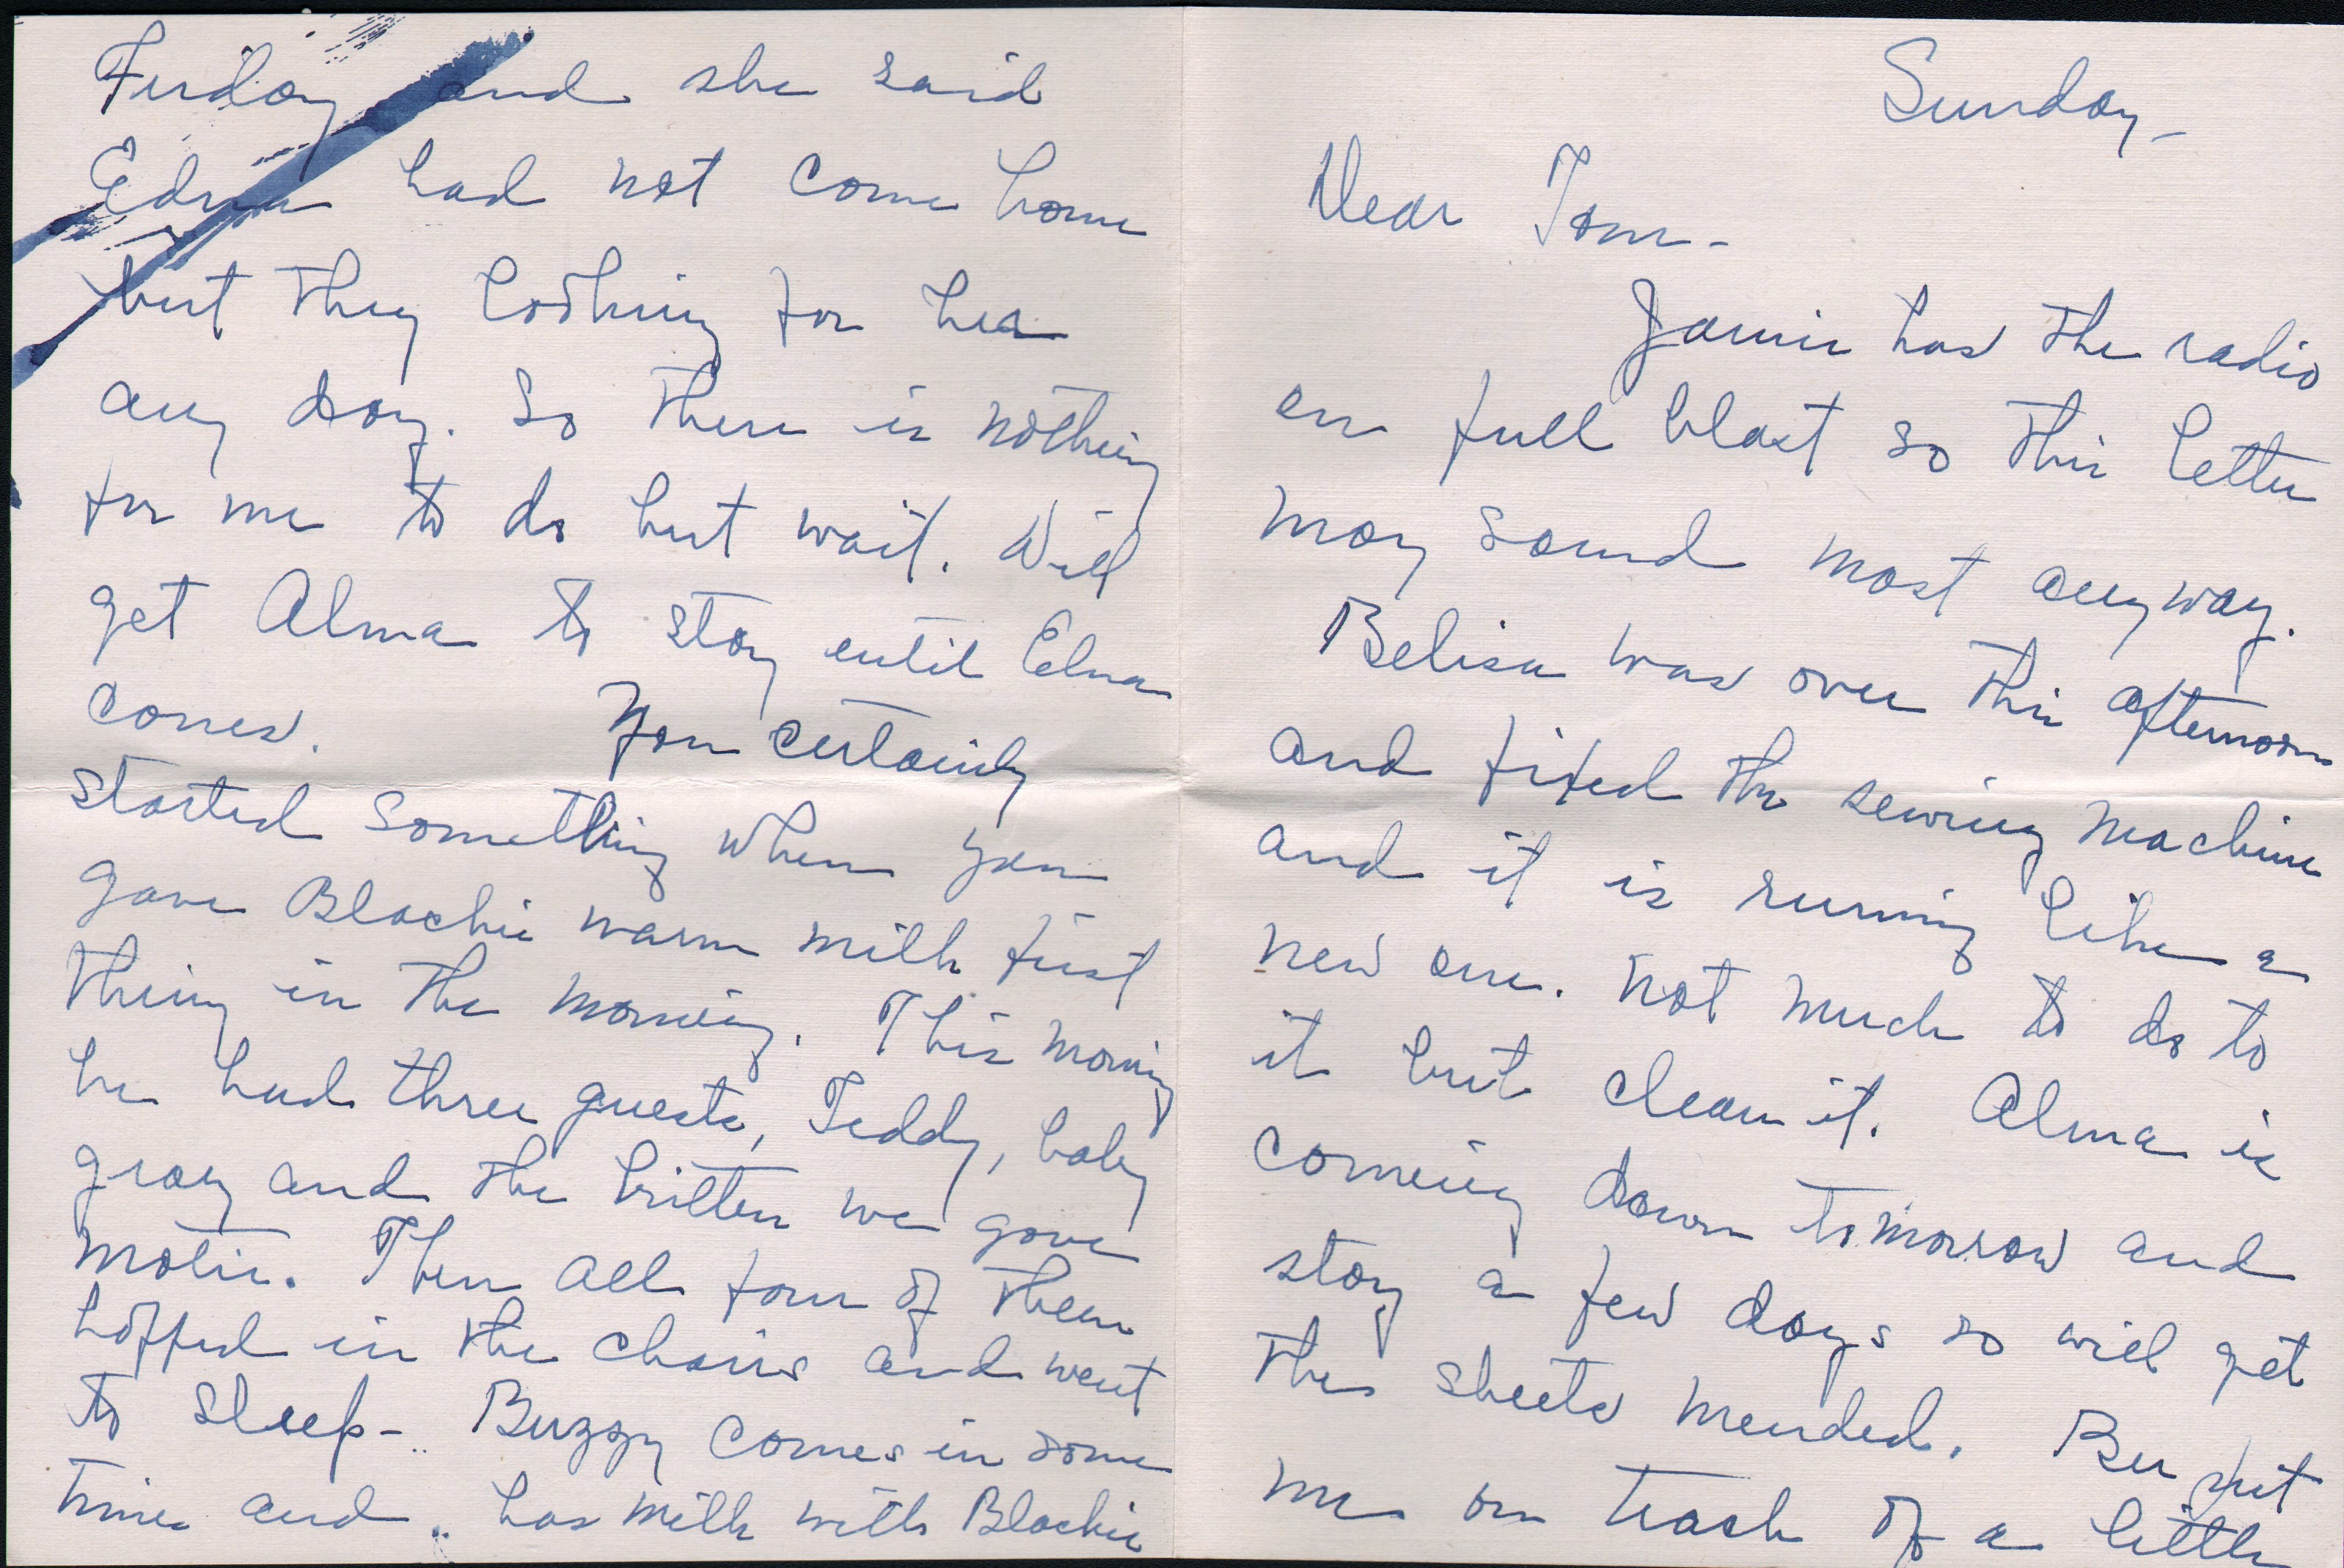 Sunday-
Dear Tom-
Jamie has the radio
on full blast so this letter
may sound most anyway.
Belisa was over this afternoon
and fixed the sewing machine
and it is running like a
new one. Not much to do to
it but clean it. Alma is
coming down tomorrow and
stay a few days so will get
the sheets mended. Bee put
me on track of a little
Friday and she said
Edna had not come home
but they looking for her
any day. So there is nothing
for me to do but wait. Will
get Alma to stay until Edna
comes. You certainly
started something when you
gave Blackie warm milk first
thing in the morning. This morning
he had three guests, Teddy, baby
gray and the kitten we gave
Then all four of them
hopped in the chairs and went
to sleep- Buzzy comes in some
times and has milk with Blackie